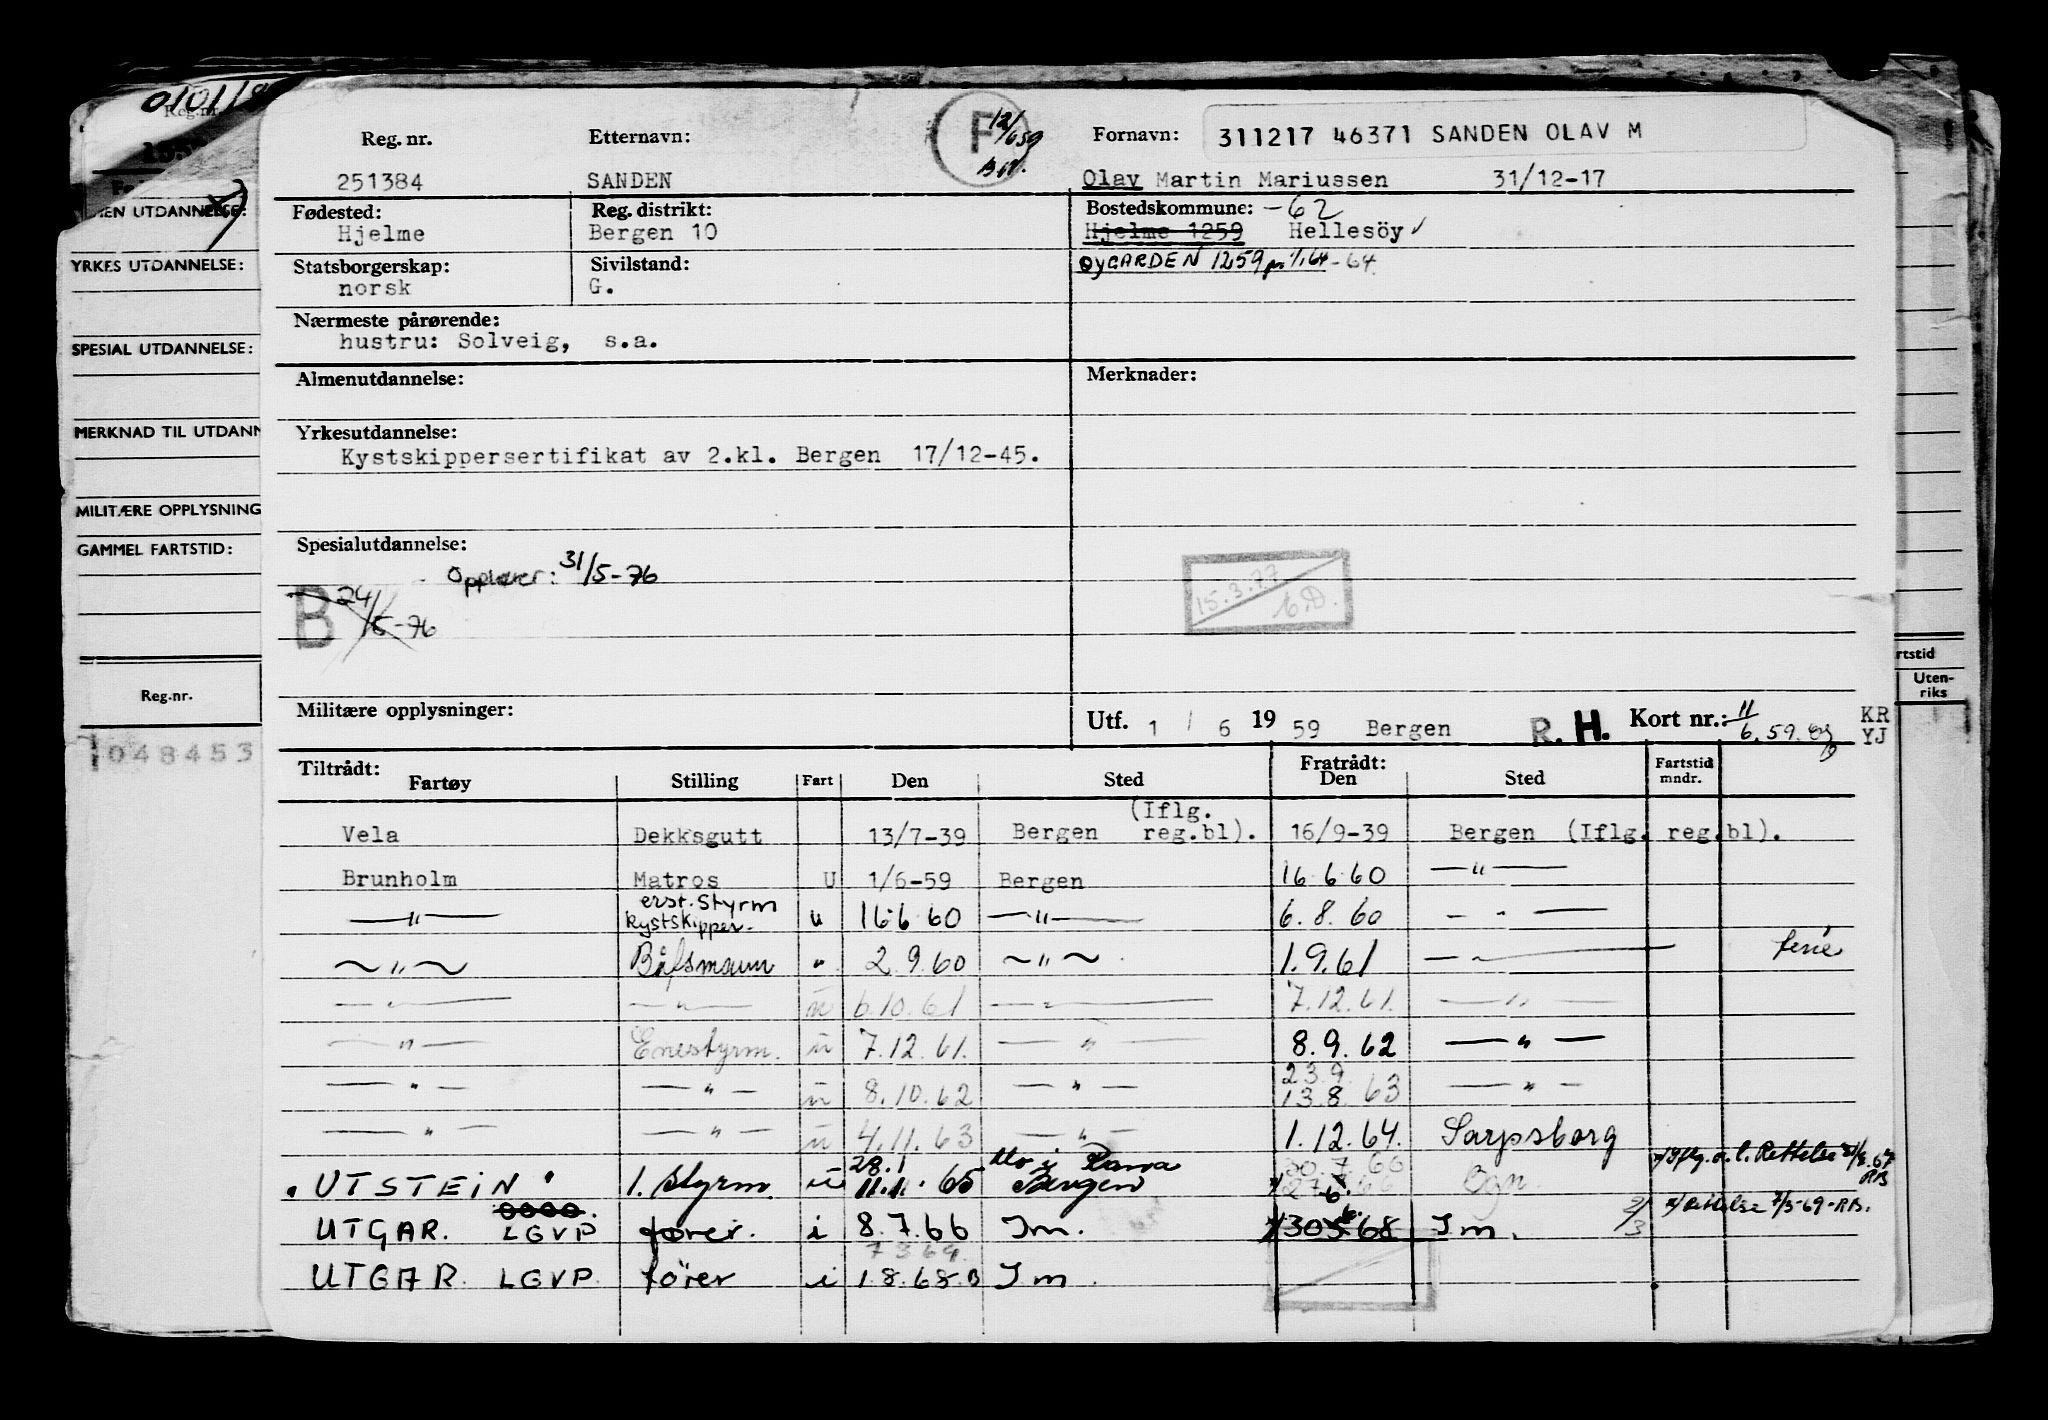 Reg. nr. Etternavn: F 12/6 59 Fornavn: 311217 46371 SANDEN OLAV M
251384 SANDEN Olav Martin Mariussen 31/12-17
Fødested: Reg. distrikt: Bostedskommune: -62
Hjelme Bergen 10 Hjelme 1259 Hellesöy
Statsborgerskap: Sivilstand: ØYGARDEN 1259 pr 1/1 64 -64.
norsk G.
Nærmeste pårørende:
hustru: Solveig, s.a.
Almenutdannelse: Merknader:
Yrkesutdannelse:
Kystskippersertifikat av 2.kl. Bergen 17/12-45.
Spesialutdannelse:
Opplærer: 31/5-76
B 24/5-76
15.3.77
Militære opplysninger: Utf. 1 / 6 19 59 Bergen R. H. Kort nr.: 11/6.59. KR
YJ
Tiltrådt: Fratrådt: Fartstid
Fartøy Stilling Fart Den Sted Den Sted mndr.
(Iflg.
Vela Dekksgutt 13/7-39 Bergen reg.bl). 16/9-39 Bergen (Iflg. reg.bl).
Brunholm Matros U 1/6-59 Bergen 16.6.60 — " —
erst. styrm
— " — kystskipper. u 16.6.60 — " — 6.8.60 — " —
— " — Båtsmann " 2.9.60 — " — 1.9.61 — " — ferie
— " — — " — u 6.10.61 — " — 7.12.61. — " —
— " — Enestyrm. u 7.12.61. — " — 8.9.62 — " —
23.9.
— " — — " — u 8.10.62 — " — 13.8.63 — " —
— " — — " — u 4.11.63 — " — 1.12.64. Sarpsborg
28.1 Mo i Rana 30.7.66
"UTSTEIN" 1. styrm. u 11.1.65 Bergen 27.6.66 Bgn. Iflg. a.l. Rettelse
RB
UTGAR. LGVP fører. i 8.7.66 Im. 30.5.68 Im. 2/3 Rettelse 7/3-69-RB.
7 3 69
UTGAR. LGVP. förer i 1.8.68 B Im.
0101
Reg.nr.
MEN UTDANNELSE:
YRKES UTDANNELSE:
SPESIAL UTDANNELSE:
MERKNAD TIL UTDANN
MILITÆRE OPPLYSNING
GAMMEL FARTSTID:
Reg.nr.
048453
rtstid
Uten-
riks